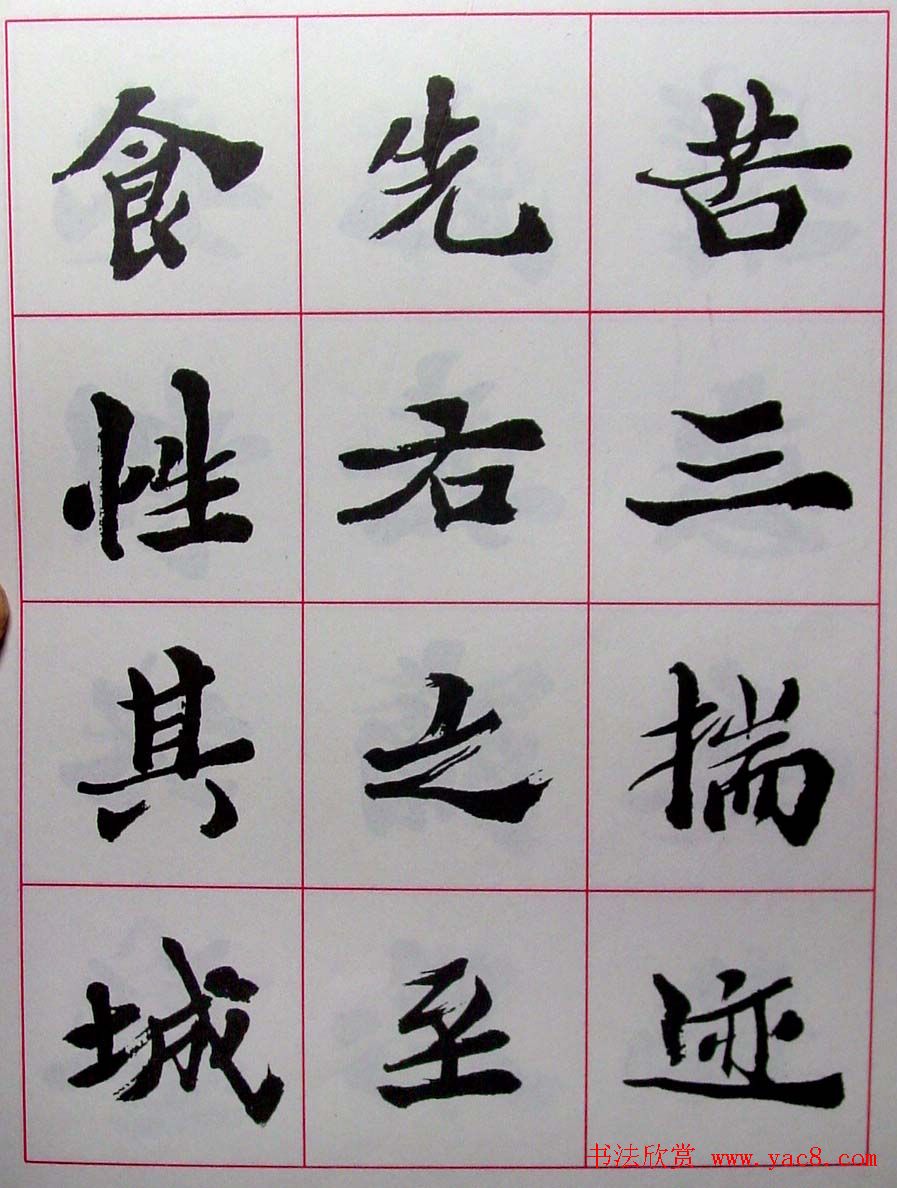 苦三揣迹
先右之至
食性其城
书法欣赏 www.yac8.com